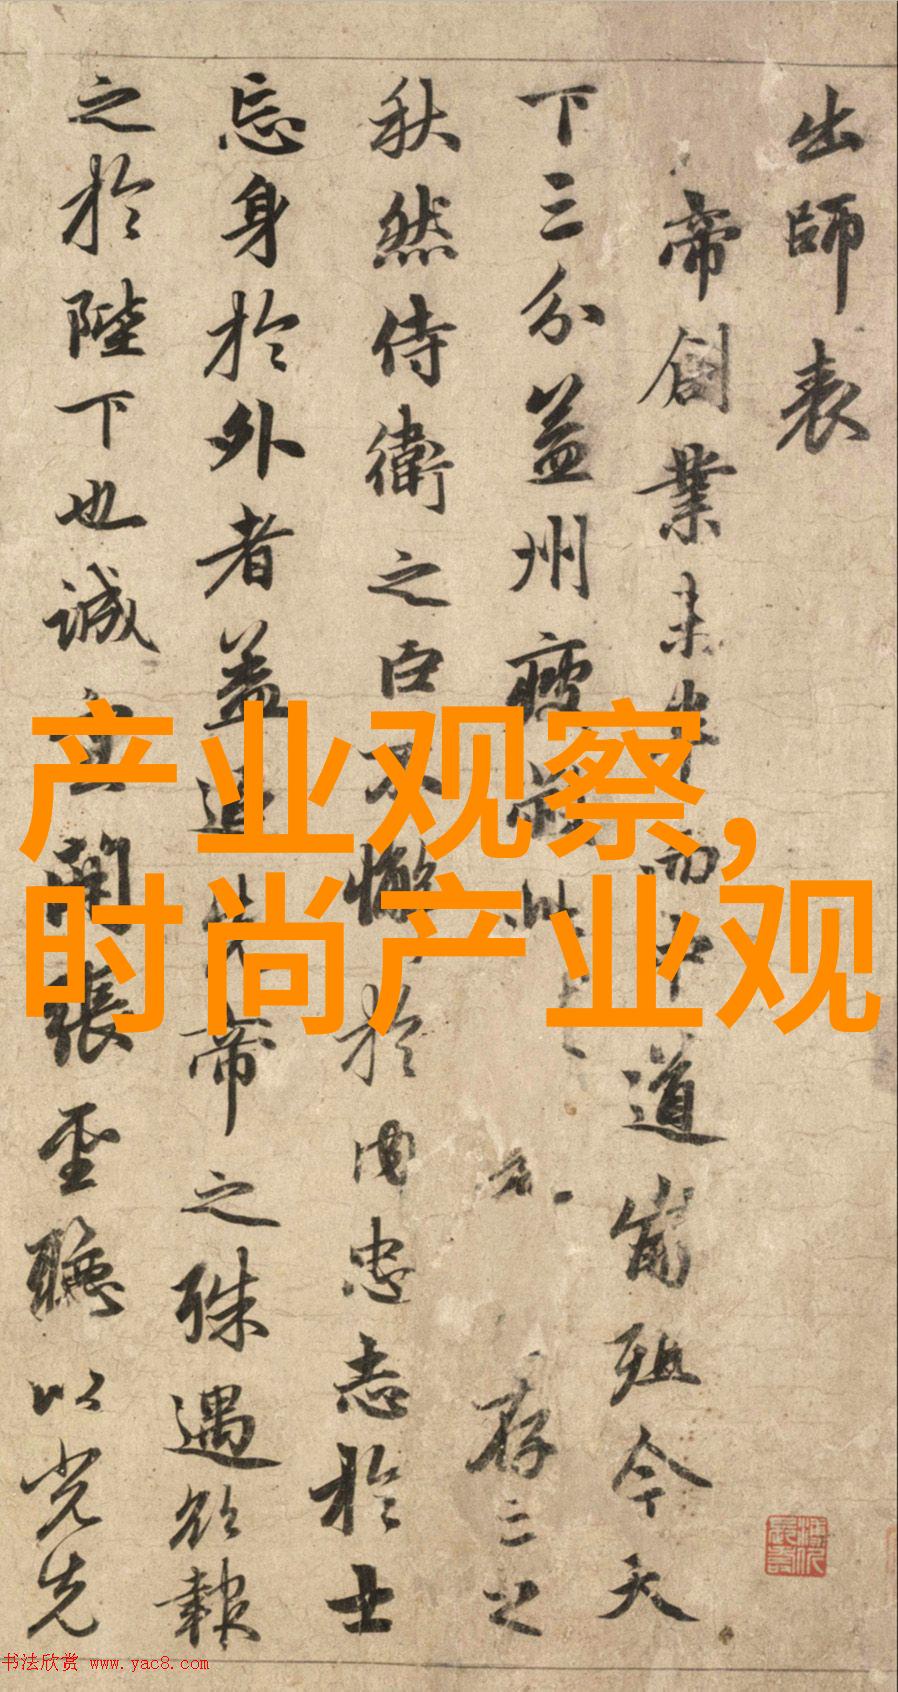 出師表
帝創業未半而中道崩殂今天
下三分益州疲弊此存亡之
秋然侍衛之臣不懈於内忠志於士
忘身於外者蓋追先帝之殊遇欲報
之於陛下也誠宜開張聖聽以光先
产业观察,
时尚产业观
书法欣赏 www.yac8.com